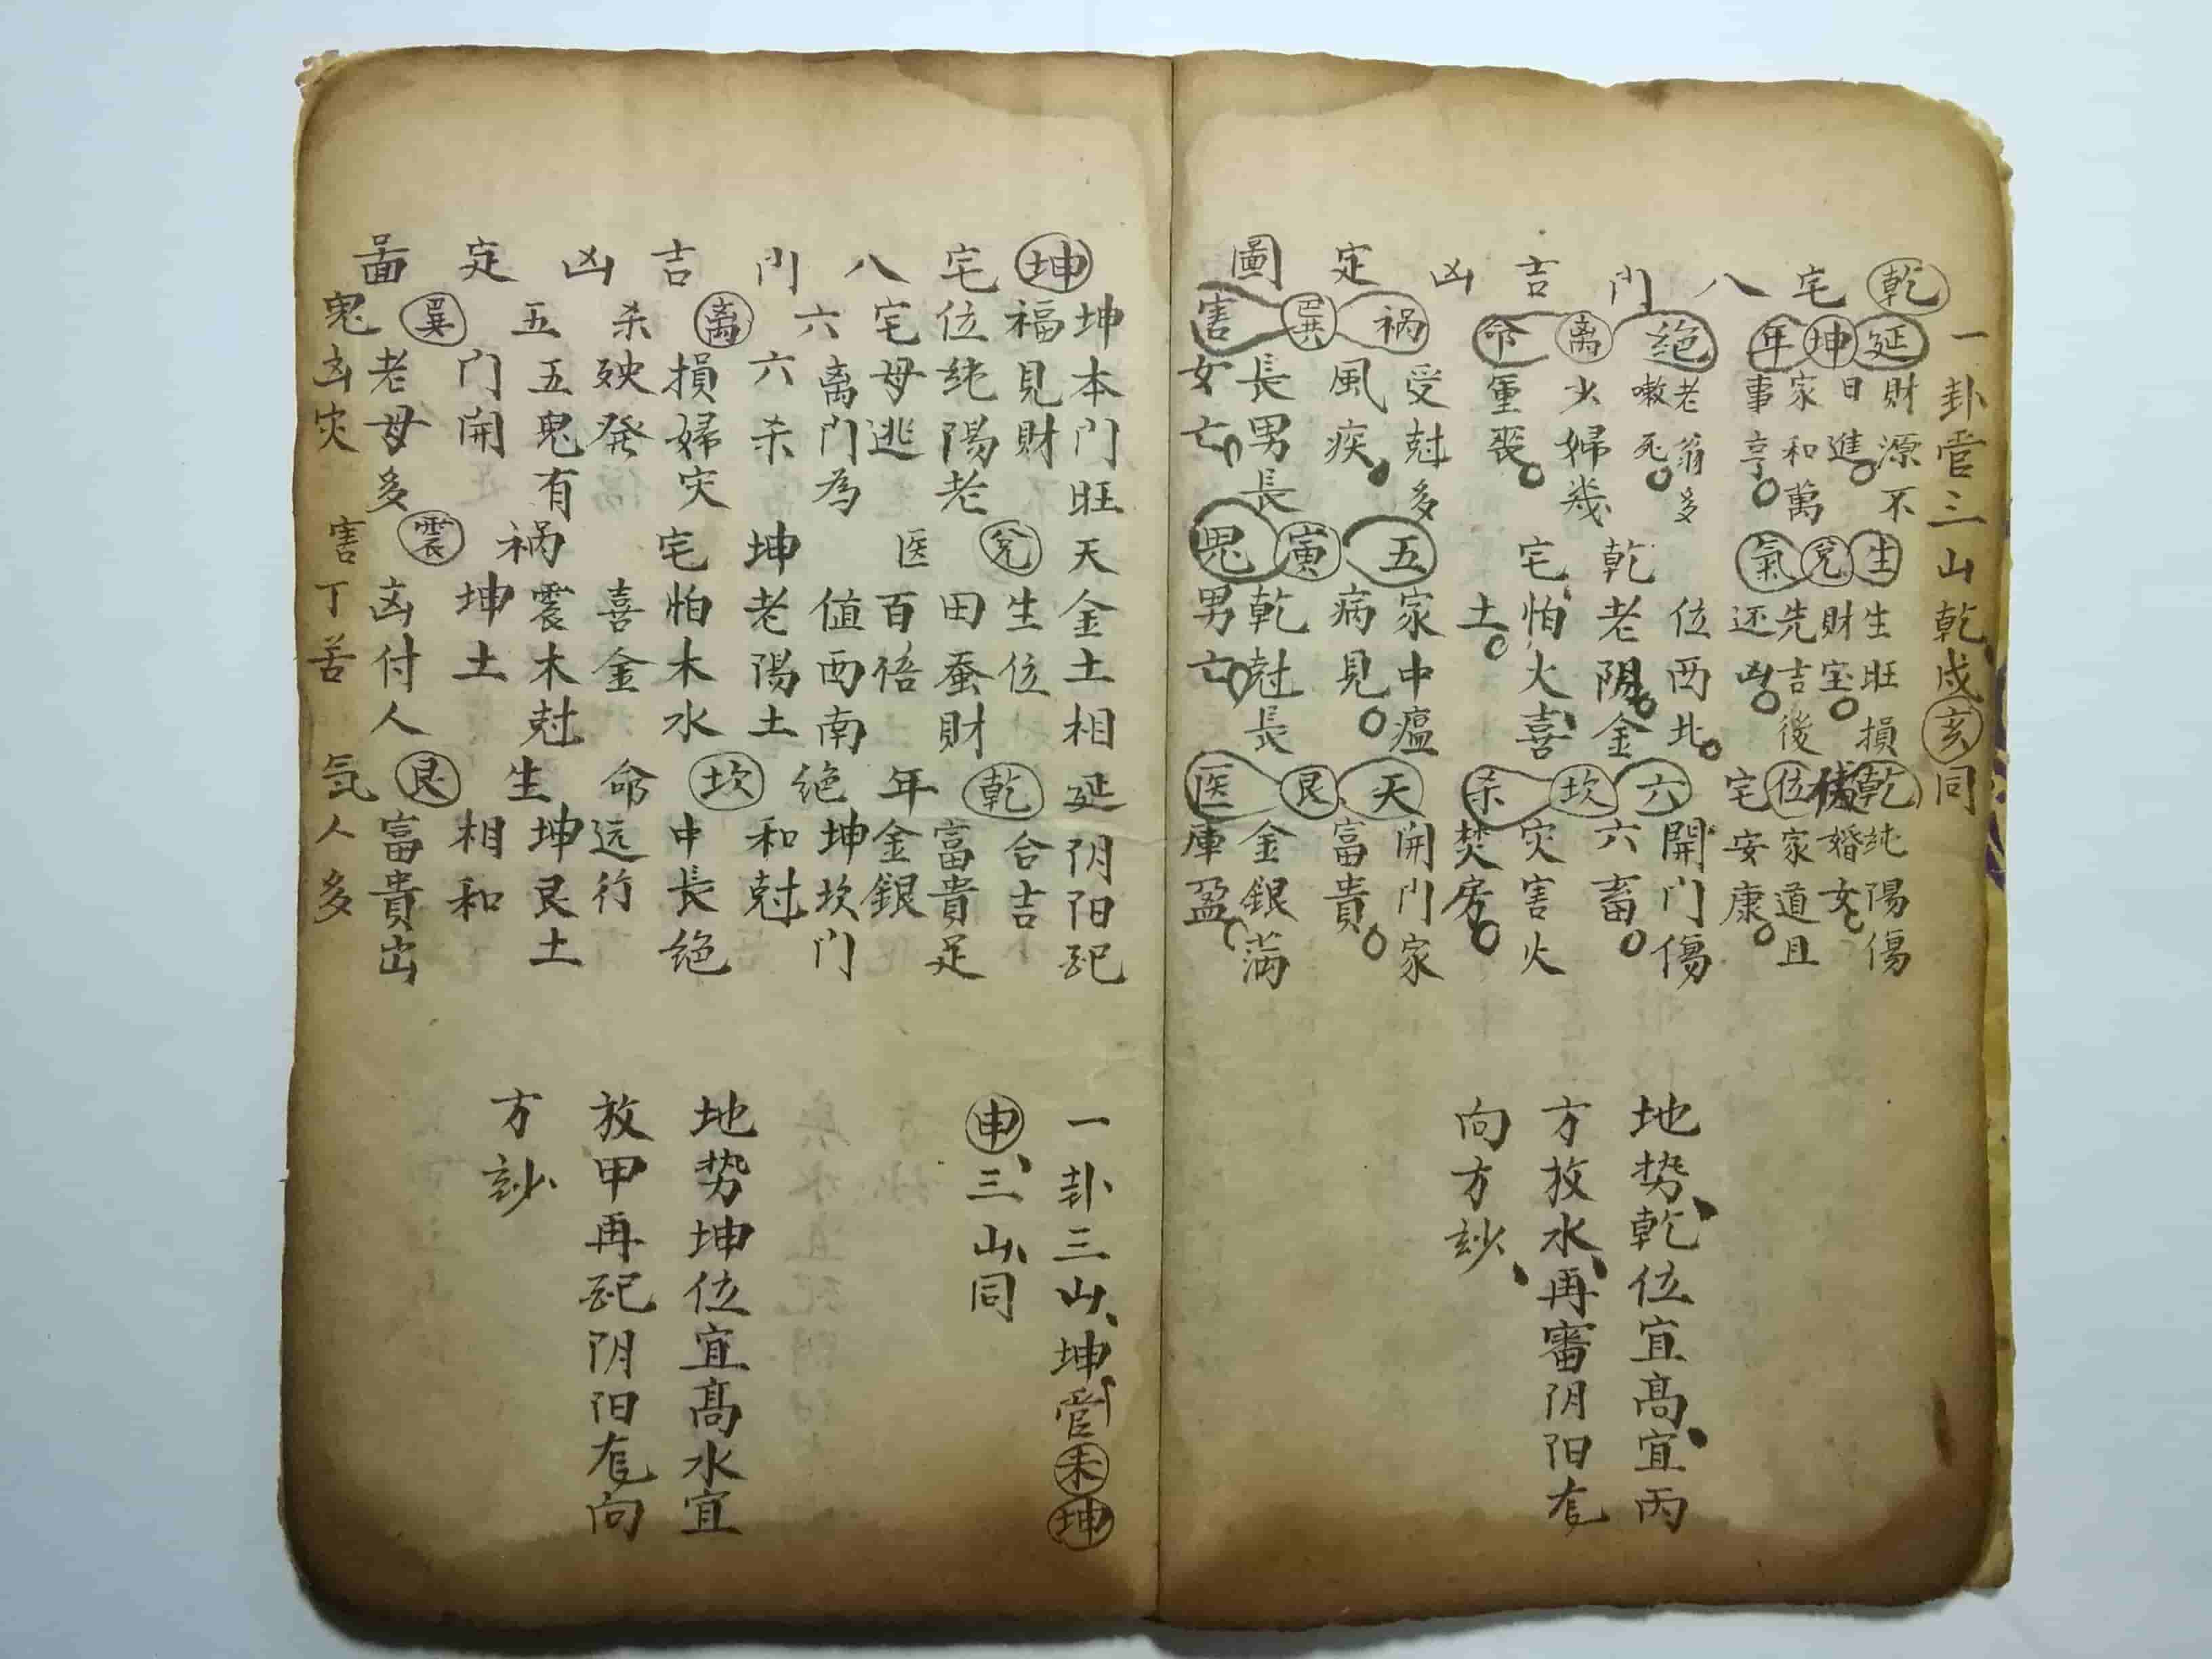 乾宅八门吉凶定圖
一卦管三山乾戍亥同
延坤年
財源不
日進
家和萬
事亨
絶離命
老翁多
嗽死
少婦幾
重喪
祸巽害
受尅多
風疾
長男長
女亡
生兌氣
生旺損
財宝
先吉後
还凶
位西北
乾老阴金
宅怕火喜
土
五寅鬼
家中瘟
病見
乾尅長
男亡
乾伏位宅
純陽傷
婚女
家道且
安康
六坎杀
開门傷
六畜
灾害火
焚房
天艮医
開门家
富貴
金銀满
庫盈
地势乾位宜髙宜丙
方放水再審阴阳右
向方妙
坤宅八门吉凶定啚
坤本门旺
福見財
位純陽老
宅母逃
六离杀
离门為
六杀
損婦灾
殃発
五巽鬼
五鬼有
门開
老母多
凶灾
天兌医
金土相
生位
田蚕財
百倍
値西南
坤老陽土
宅怕木水
喜金
祸震害
震木尅
坤土
凶付人
丁苦
延乾年
阴阳配
合吉
富貴足
金銀
绝坎命
坤坎门
和尅
中長绝
远行
生艮气
坤艮土
相和
富貴出
人多
一卦三山坤管未坤
申三山同
地势坤位宜髙水宜
放甲再配阴阳右向
方妙